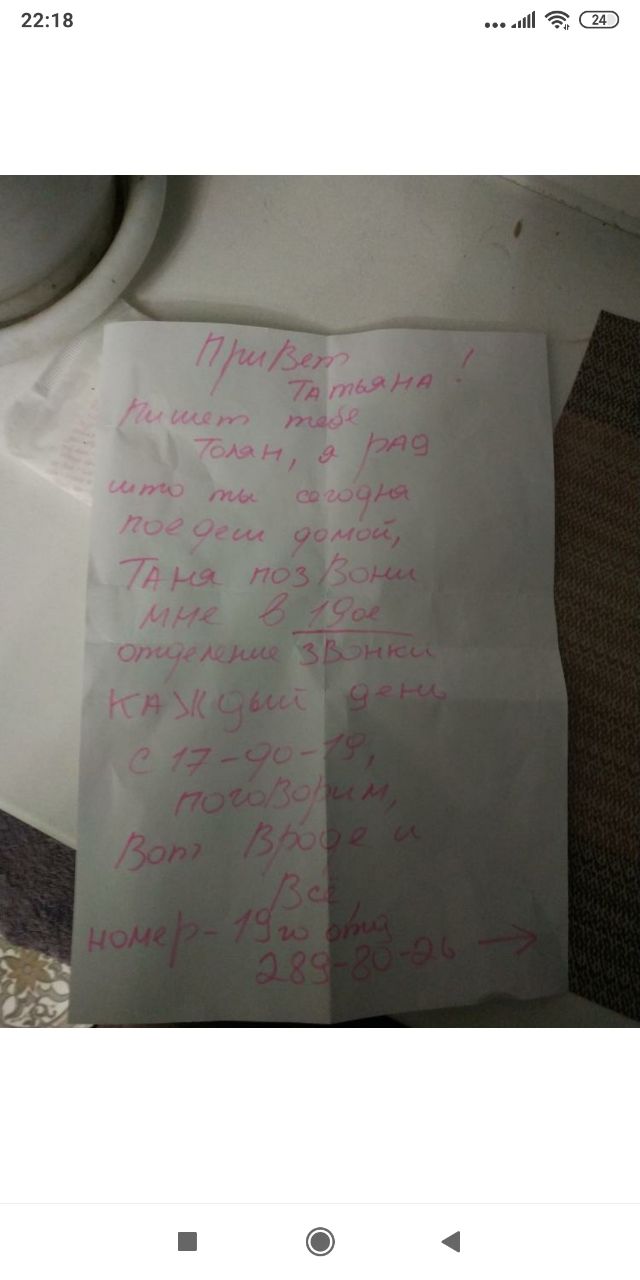 22:18
24
Привет
Татьяна !
Пишет тебе
Толян, я рад
што ты сегодня
поедеш домой,
Таня позвони
мне в 19ое
отделение звонки
каждый день
с 17-до-19,
поговорим,
Вот Вроде и
Всё,
номер-19го отд
289-80-26 →